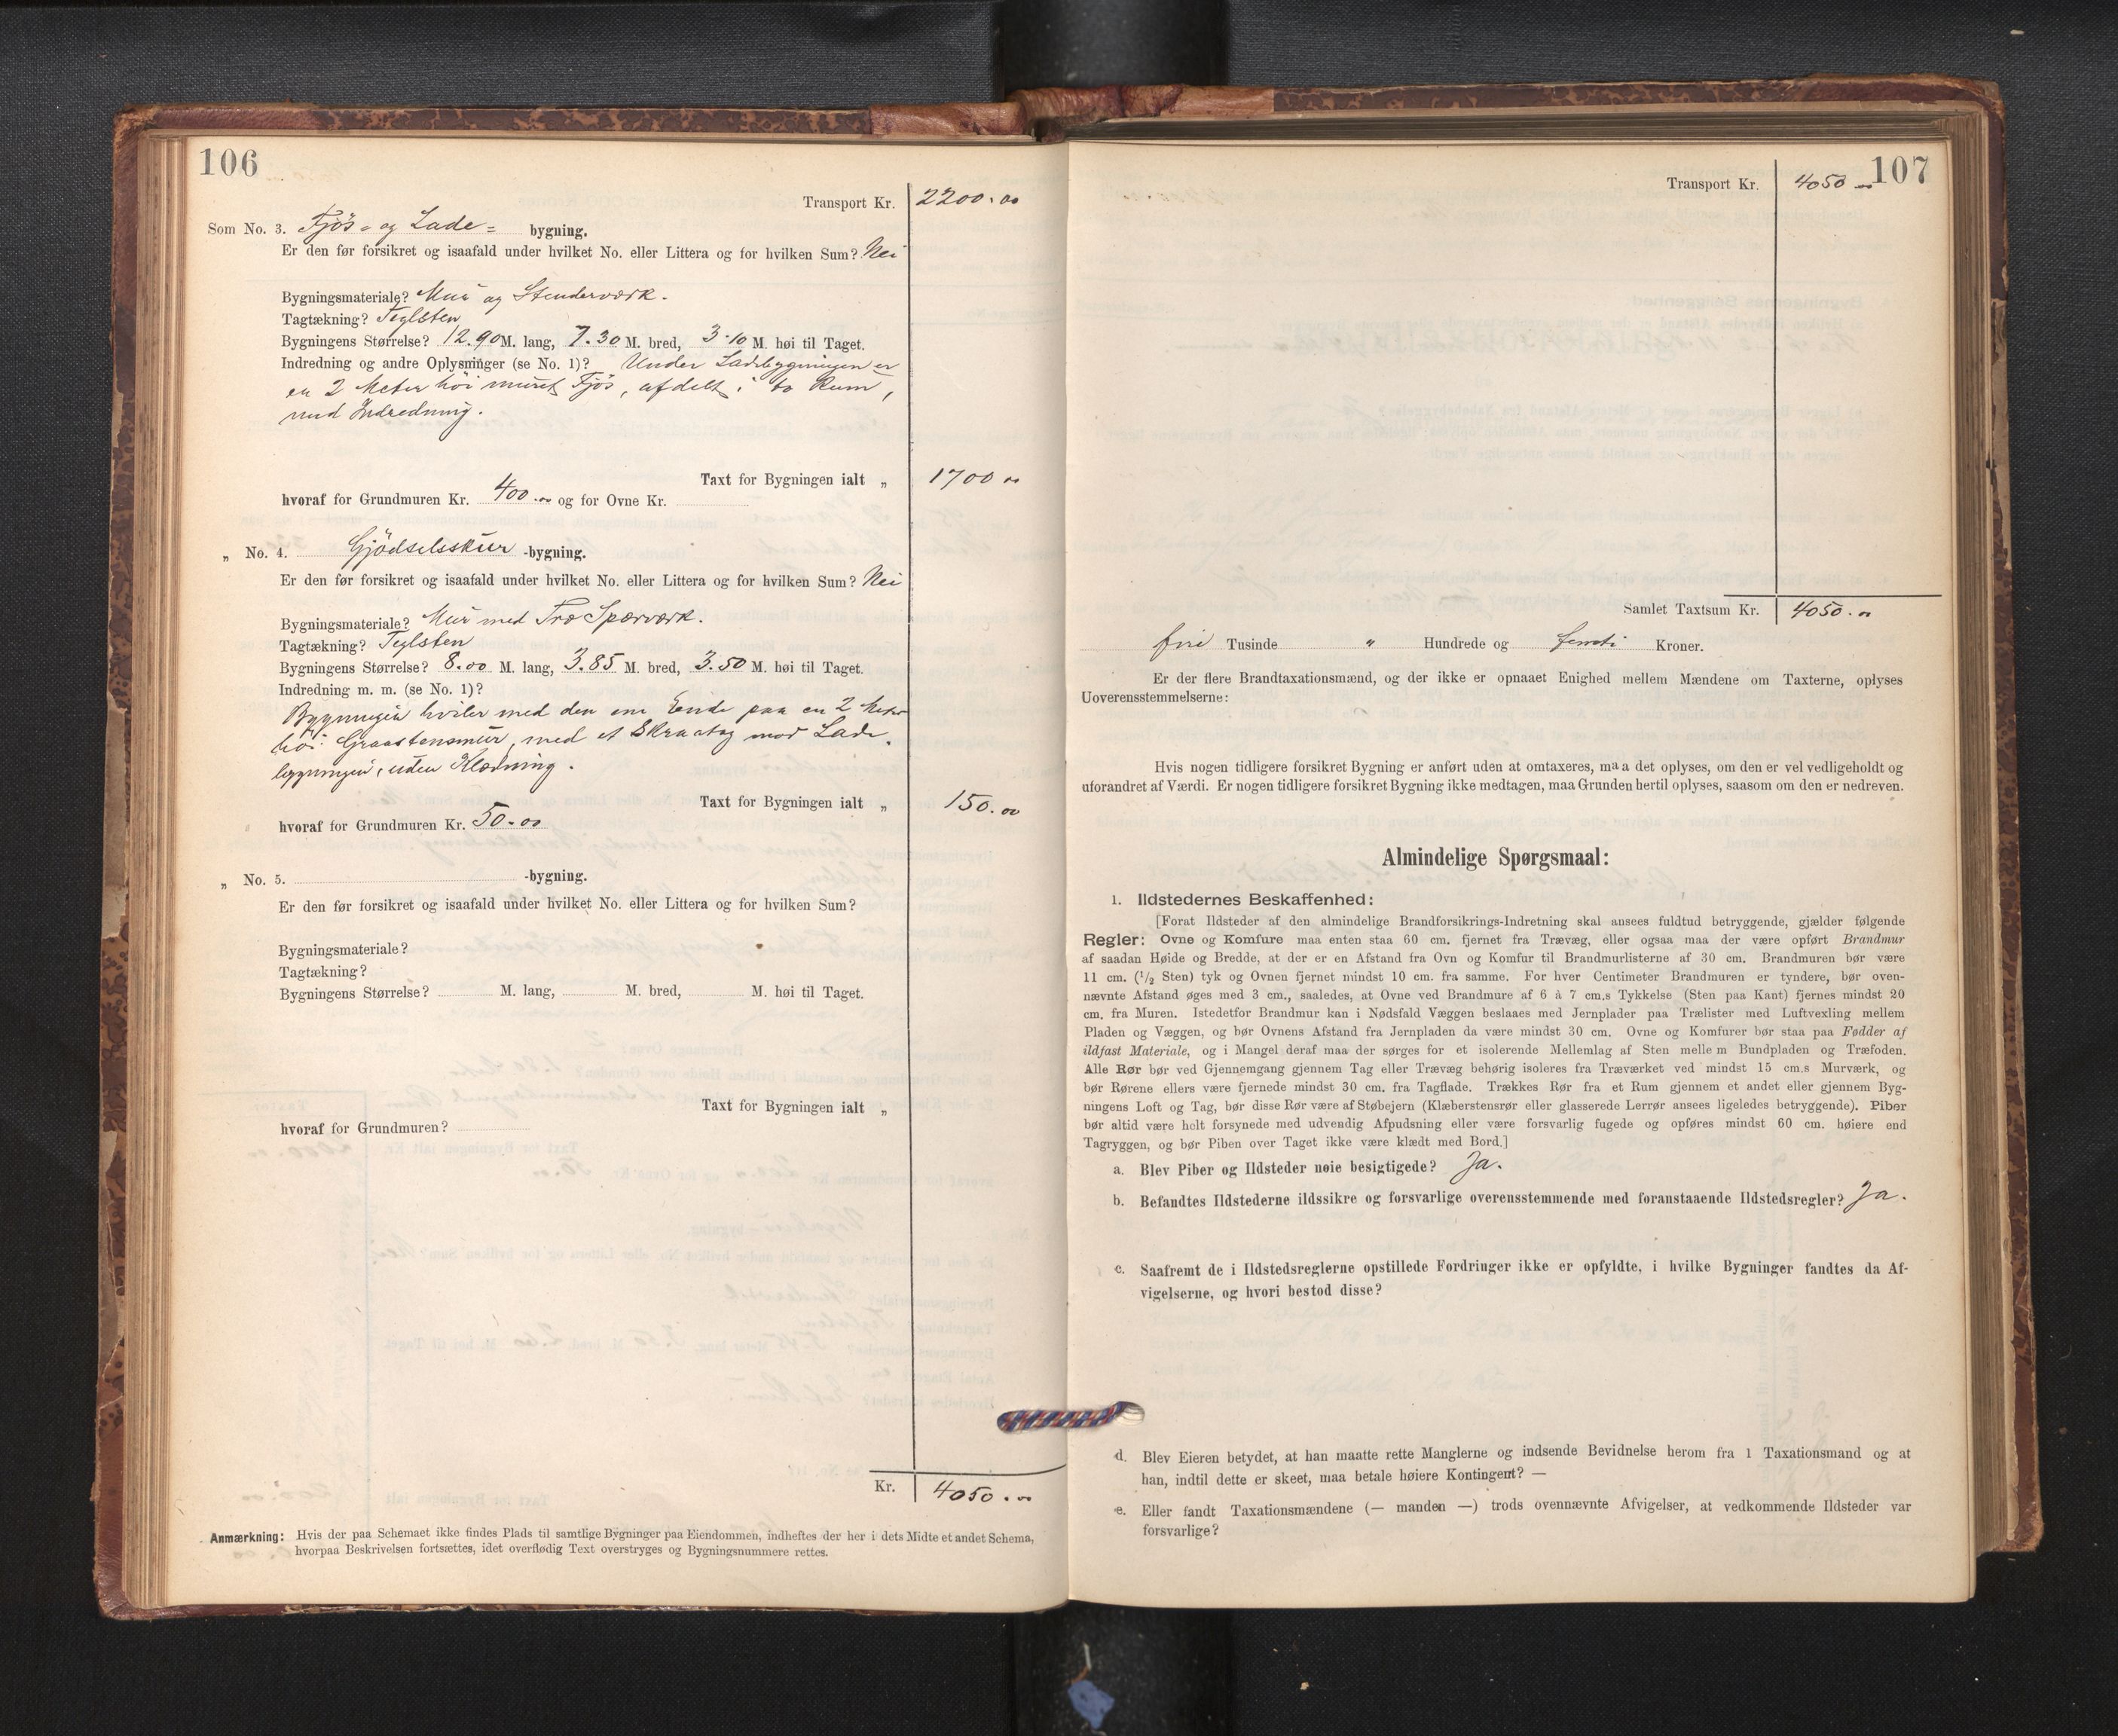 106
Transport Kr. 2200.00
Som No. 3. Fjös- og Lade- bygning.
Er den før forsikret og isaafald under hvilket No. eller Littera og for hvilken Sum? Nei
Bygningsmateriale? Mur og Stenderværk.
Tagtækning? Teglsten
Bygningens Størrelse? 12.90 M. lang, 7.30 M. bred, 3.10 M. høi til Taget.
Indredning og andre Oplysninger (se No. 1)? Under Ladebygningen er
en 2 Meter höi muret Fjös, afdelt i to Rum,
med Indredning.
Taxt for Bygningen ialt „ 1700 00
hvoraf for Grundmuren Kr. 400.00 og for Ovne Kr.
„ No. 4. Gjödselsskur -bygning.
Er den før forsikret og isaafald under hvilket No. eller Littera og for hvilken Sum? Nei
Bygningsmateriale? Mur med Træ Sperværk.
Tagtækning? Teglsten
Bygningens Størrelse? 8.00 M. lang, 3.85 M. bred, 3.50 M. høi til Taget.
Indredning m. m. (se No. 1)?
Bygningen hviler med den ene Ende paa en 2 Meter
höi Graastensmur, med et Skraatag mod Lade-
bygningen, uden Klædning.
Taxt for Bygningen ialt „ 150.00
hvoraf for Grundmuren Kr. 50.00
„ No. 5. -bygning.
Er den før forsikret og isaafald under hvilket No. eller Littera og for hvilken Sum?
Bygningsmateriale?
Tagtækning?
Bygningens Størrelse? M. lang, M. bred, M. høi til Taget.
Taxt for Bygningen ialt „
hvoraf for Grundmuren?
Kr. 4050.00
Anmærkning: Hvis der paa Schemaet ikke findes Plads til samtlige Bygninger paa Eiendommen, indheftes der her i dets Midte et andet Schema,
hvorpaa Beskrivelsen fortsættes, idet overflødig Text overstryges og Bygningsnummere rettes.
107
Transport Kr. 4050 00
Samlet Taxtsum Kr. 4050.00
fire Tusinde " Hundrede og femti Kroner.
Er der flere Brandtaxationsmænd, og der ikke er opnaaet Enighed mellem Mændene om Taxterne, oplyses
Uoverensstemmelserne:
Hvis nogen tidligere forsikret Bygning er anført uden at omtaxeres, maa det oplyses, om den er vel vedligeholdt og
uforandret af Værdi. Er nogen tidligere forsikret Bygning ikke medtagen, maa Grunden hertil oplyses, saasom om den er nedreven.
Almindelige Spørgsmaal:
1. Ildstedernes Beskaffenhed:
[Forat Ildsteder af den almindelige Brandforsikrings-Indretning skal ansees fuldtud betryggende, gjælder følgende
Regler: Ovne og Komfure maa enten staa 60 cm. fjernet fra Trævæg, eller ogsaa maa der være opført Brandmur
af saadan Høide og Bredde, at der er en Afstand fra Ovn og Komfur til Brandmurlisterne af 30 cm. Brandmuren bør være
11 cm. (1/2 Sten) tyk og Ovnen fjernet mindst 10 cm. fra samme. For hver Centimeter Brandmuren er tyndere, bør oven-
nævnte Afstand øges med 3 cm., saaledes, at Ovne ved Brandmure af 6 à 7 cm.s Tykkelse (Sten paa Kant) fjernes mindst 20
cm. fra Muren. Istedetfor Brandmur kan i Nødsfald Væggen beslaaes med Jernplader paa Trælister med Luftvexling mellem
Pladen og Væggen, og bør Ovnens Afstand fra Jernpladen da være mindst 30 cm. Ovne og Komfurer bør staa paa Fødder af
ildfast Materiale, og i Mangel deraf maa der sørges for et isolerende Mellemlag af Sten mellem Bundpladen og Træfoden.
Alle Rør bør ved Gjennemgang gjennem Tag eller Trævæg behørig isoleres fra Træværket ved mindst 15 cm.s Murværk, og
bør Rørene ellers være fjernede mindst 30 cm. fra Tagflade. Trækkes Rør fra et Rum gjennem et andet eller gjennem Byg-
ningens Loft og Tag, bør disse Rør være af Støbejern (Klæberstensrør eller glasserede Lerrør ansees ligeledes betryggende). Piber
bør altid være helt forsynede med udvendig Afpudsning eller være forsvarlig fugede og opføres mindst 60 cm. høiere end
Tagryggen, og bør Piben over Taget ikke være klædt med Bord.]
a. Blev Piber og Ildsteder nøie besigtigede? Ja.
b. Befandtes Ildstederne ildssikre og forsvarlige overensstemmende med foranstaaende Ildstedsregler? Ja.
c. Saafremt de i Ildstedsreglerne opstillede Fordringer ikke er opfyldte, i hvilke Bygninger fandtes da Af-
vigelserne, og hvori bestod disse?
d. Blev Eieren betydet, at han maatte rette Manglerne og indsende Bevidnelse herom fra 1 Taxationsmand og at
han, indtil dette er skeet, maa betale høiere Kontingent? —
e. Eller fandt Taxationsmændene (— manden —) trods ovennævnte Afvigelser, at vedkommende Ildsteder var
forsvarlige?